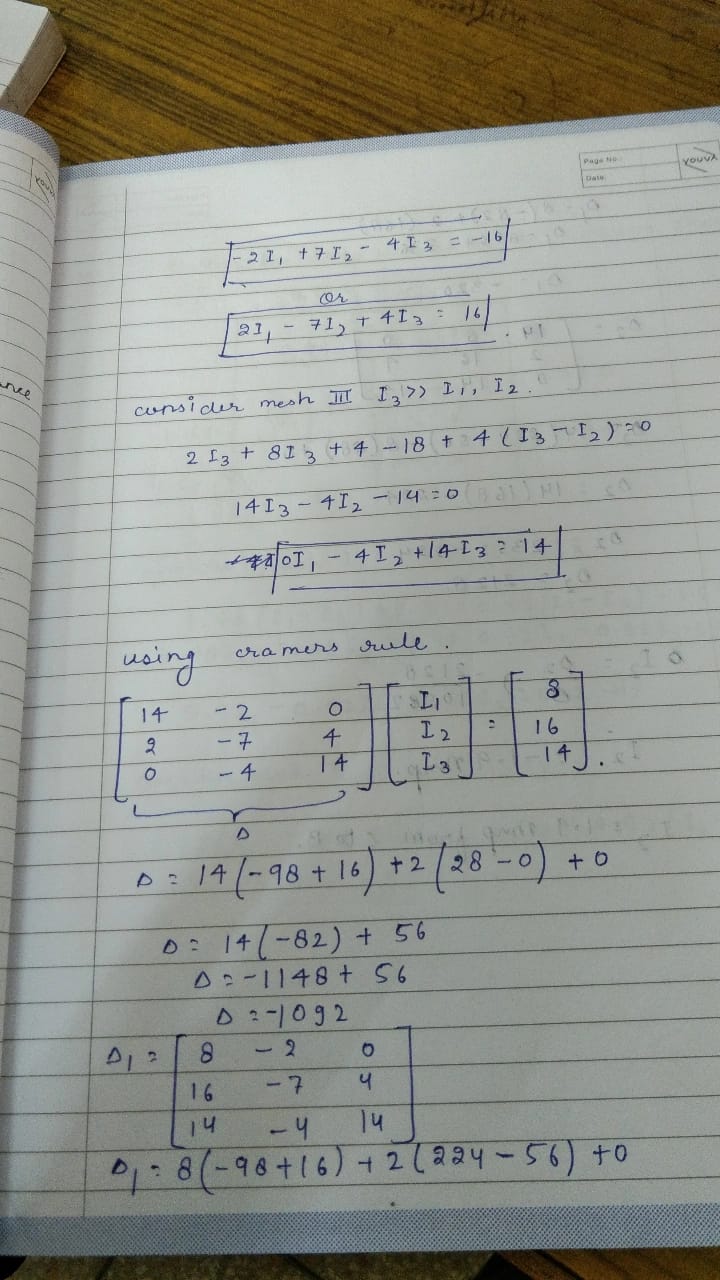 Page No.
Date
YOUVA
- 2 I₁ + 7 I₂ - 4 I₃ = -16
Or
2I₁ - 7I₂ + 4I₃ = 16
consider mesh III I₃ >> I₁, I₂.
2 I₃ + 8I₃ + 4 - 18 + 4 (I₃ - I₂) = 0
14I₃ - 4I₂ - 14 = 0
0I₁ - 4I₂ + 14 I₃ = 14
using cramers rule.
14 -2 0 I₁ 8
2 -7 4 I₂ = 16
0 -4 14 I₃ 14 .
Δ
Δ = 14 (-98 + 16) + 2 (28 - 0) + 0
Δ = 14 (-82) + 56
Δ = -1148 + 56
Δ = -1092
Δ₁ = 8 -2 0
16 -7 4
14 -4 14
Δ₁ = 8 (-98 + 16) + 2 (224 - 56) + 0